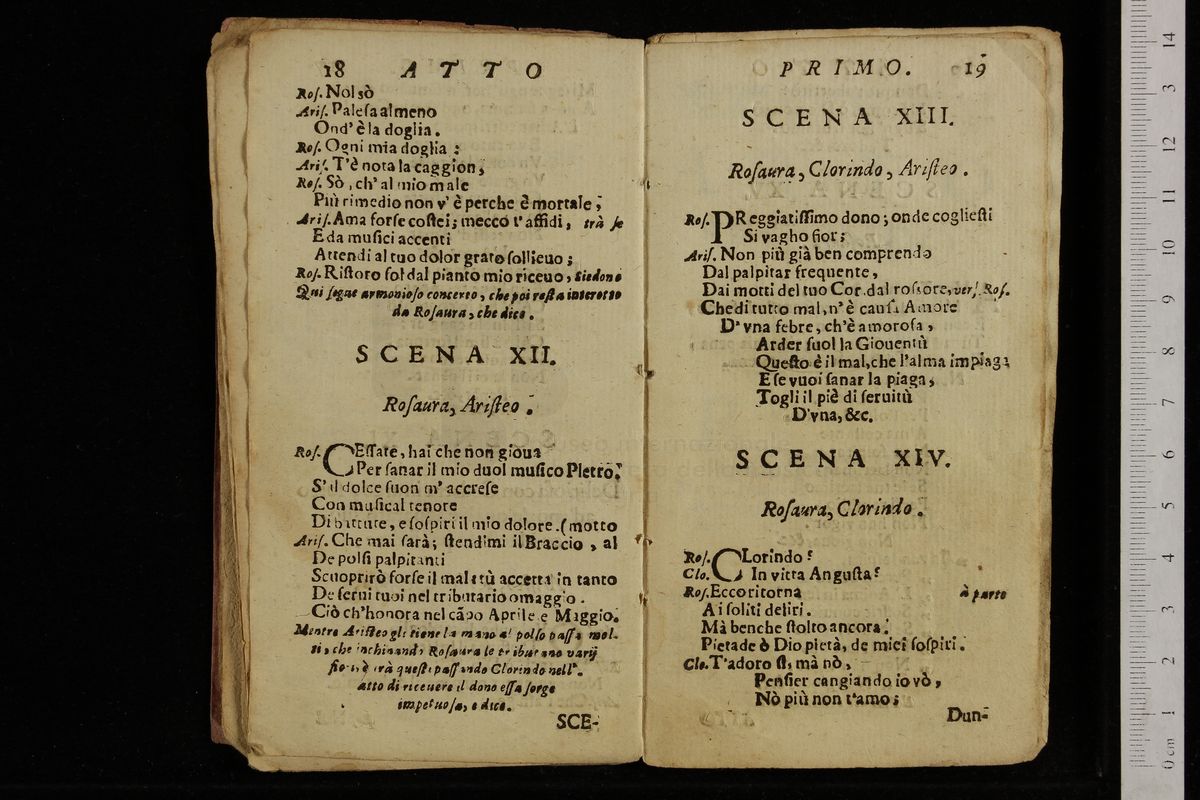 18 ATTO
Roſ. Nol sò
Ariſ. Paleſa almeno
Ond' è la doglia.
Roſ. Ogni mia doglia:
Ariſ. T'è nota la caggion;
Roſ. Sò, ch' al mio male
Più rimedio non v' è perche è mortale;
Ariſ. Ama forſe coſtei; mecco t' affidi, trà ſe
E da muſici accenti
Attendi al tuo dolor grato ſollieuo;
Roſ. Riſtoro ſol dal pianto mio riceuo, Siedono
Qui ſegue armonioſo concerto, che poi reſta interotto
da Roſaura, che dice.
SCENA XII.
Roſaura, Ariſteo.
Roſ. CEſſate, hai che non gioua
Per ſanar il mio duol muſico Plettro;
S' il dolce ſuon m' accreſe
Con muſical tenore
Di battute, e ſoſpiri il mio dolore. (motto
Ariſ. Che mai ſarà; ſtendimi il Braccio, al
De polſi palpitanti
Scuoprirò forſe il mal tù accetta in tanto
De ſerui tuoi nel tributario omaggio.
Ciò ch'honora nel cãpo Aprile e Maggio.
Mentre Ariſteo gli tiene la mano al polſo paſſa mol-
ti, che inchinando Roſaura le tributano varij
fiori, è trà queſti paſſando Clorindo nell'
atto di riceuere il dono eſſa ſorge
impetuoſa, e dice.
SCE-
PRIMO. 19
SCENA XIII.
Roſaura, Clorindo, Ariſteo.
Roſ. PReggiatiſſimo dono; onde coglieſti
Si vagho fior;
Ariſ. Non più già ben comprendo
Dal palpitar frequente,
Dai motti del tuo Cor, dal roſſore, verſ. Roſ.
Che di tutto mal, n' è cauſa Amore
D' vna febre, ch'è amoroſa,
Arder ſuol la Giouentù
Queſto è il mal, che l'alma impiaga
E ſe vuoi ſanar la piaga,
Togli il piè di ſeruitù
D'vna, &c.
SCENA XIV.
Roſaura, Clorindo.
Roſ. CLorindo?
Clo. In vitta Anguſta?
Roſ. Ecco ritorna à parte
A i ſoliti deliri.
Mà benche ſtolto ancora;
Pietade ò Dio pietà, de miei ſoſpiri.
Clo. T'adoro ſi, mà nò,
Penſier cangiando io vò,
Nò più non t'amo;
Dun-